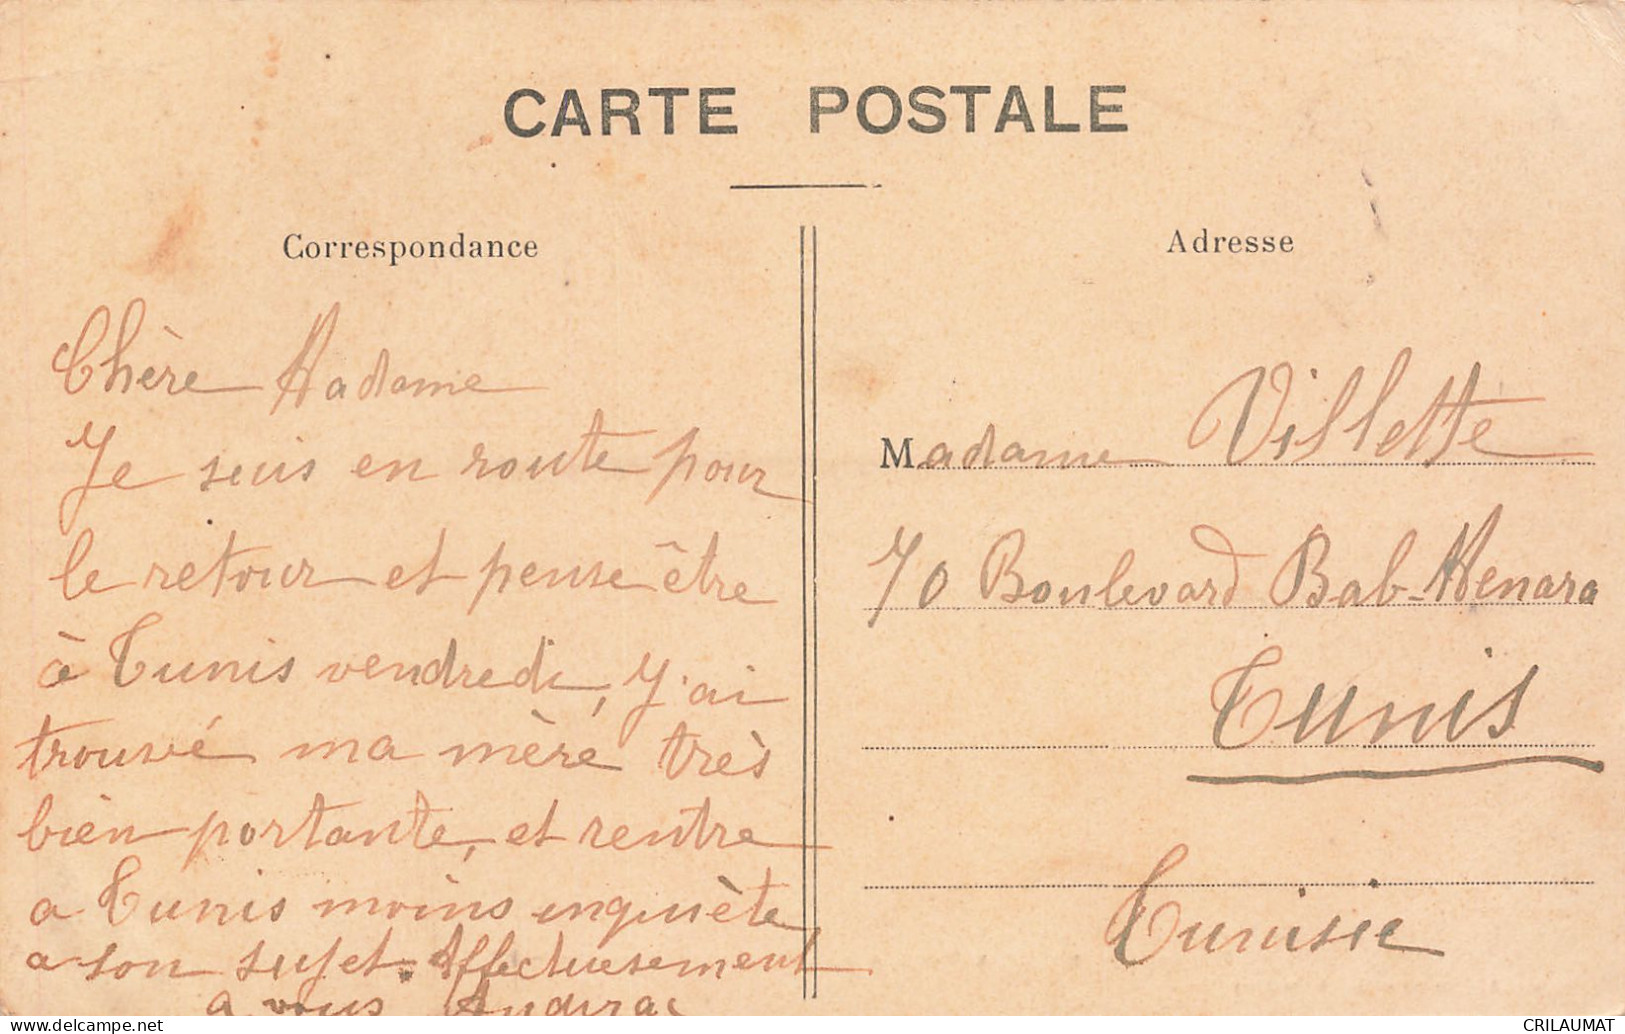 CARTE POSTALE
Correspondance
Chère Madame
Je suis en route pour
le retour et pense être
à Tunis vendredi, J'ai
trouvé ma mère très
bien portante, et rentre
a Tunis moins inquiète
a son sujet. Affectueusement
a vous
Adresse
Madame Villette
70 Boulevard Bab-Menara
Tunis
Tunisie
www.delcampe.net
CRILAUMAT